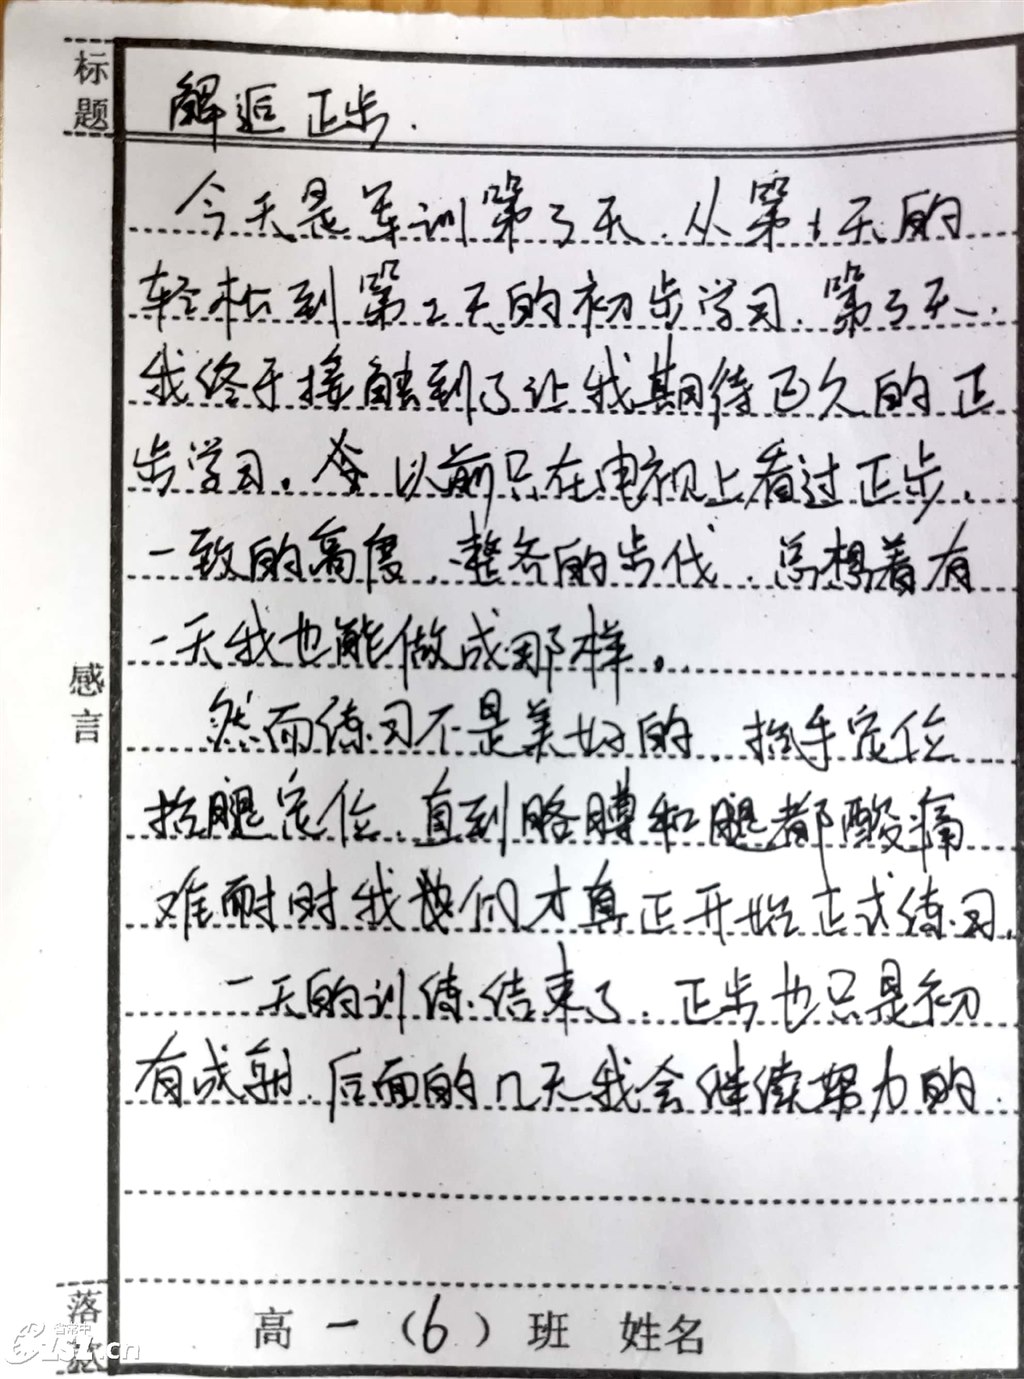 标题
解逅正步.
今天是军训第3天.从第1天的
轻松到第2天的初步学习.第3天.
我终于接触到了让我期待已久的正
步学习。以前只在电视上看过正步.
一致的高度.整齐的步伐.总想着有
一天我也能做成那样。
然而练习不是美好的.抬手定位
抬腿定位.直到胳膊和腿都酸痛
难耐时我们才真正开始正式练习.
一天的训练结束了.正步也只是初
有成就.后面的几天我会继续努力的.
感言
落款
高一(6)班 姓名